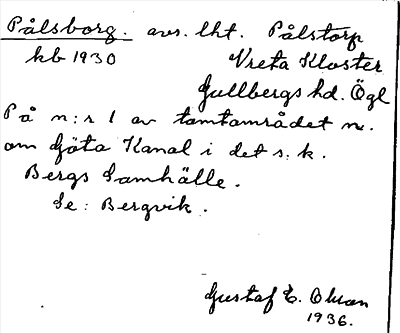 Pålsborg. avs. lht. Pålstorp
kb 1930 Vreta Kloster
Gullbergs hd. Ögl
På n:r 1 av tomtområdet n.
om Göta Kanal i det s. k.
Bergs Samhälle.
Se: Bergvik.
Gustaf E. Olson
1936.